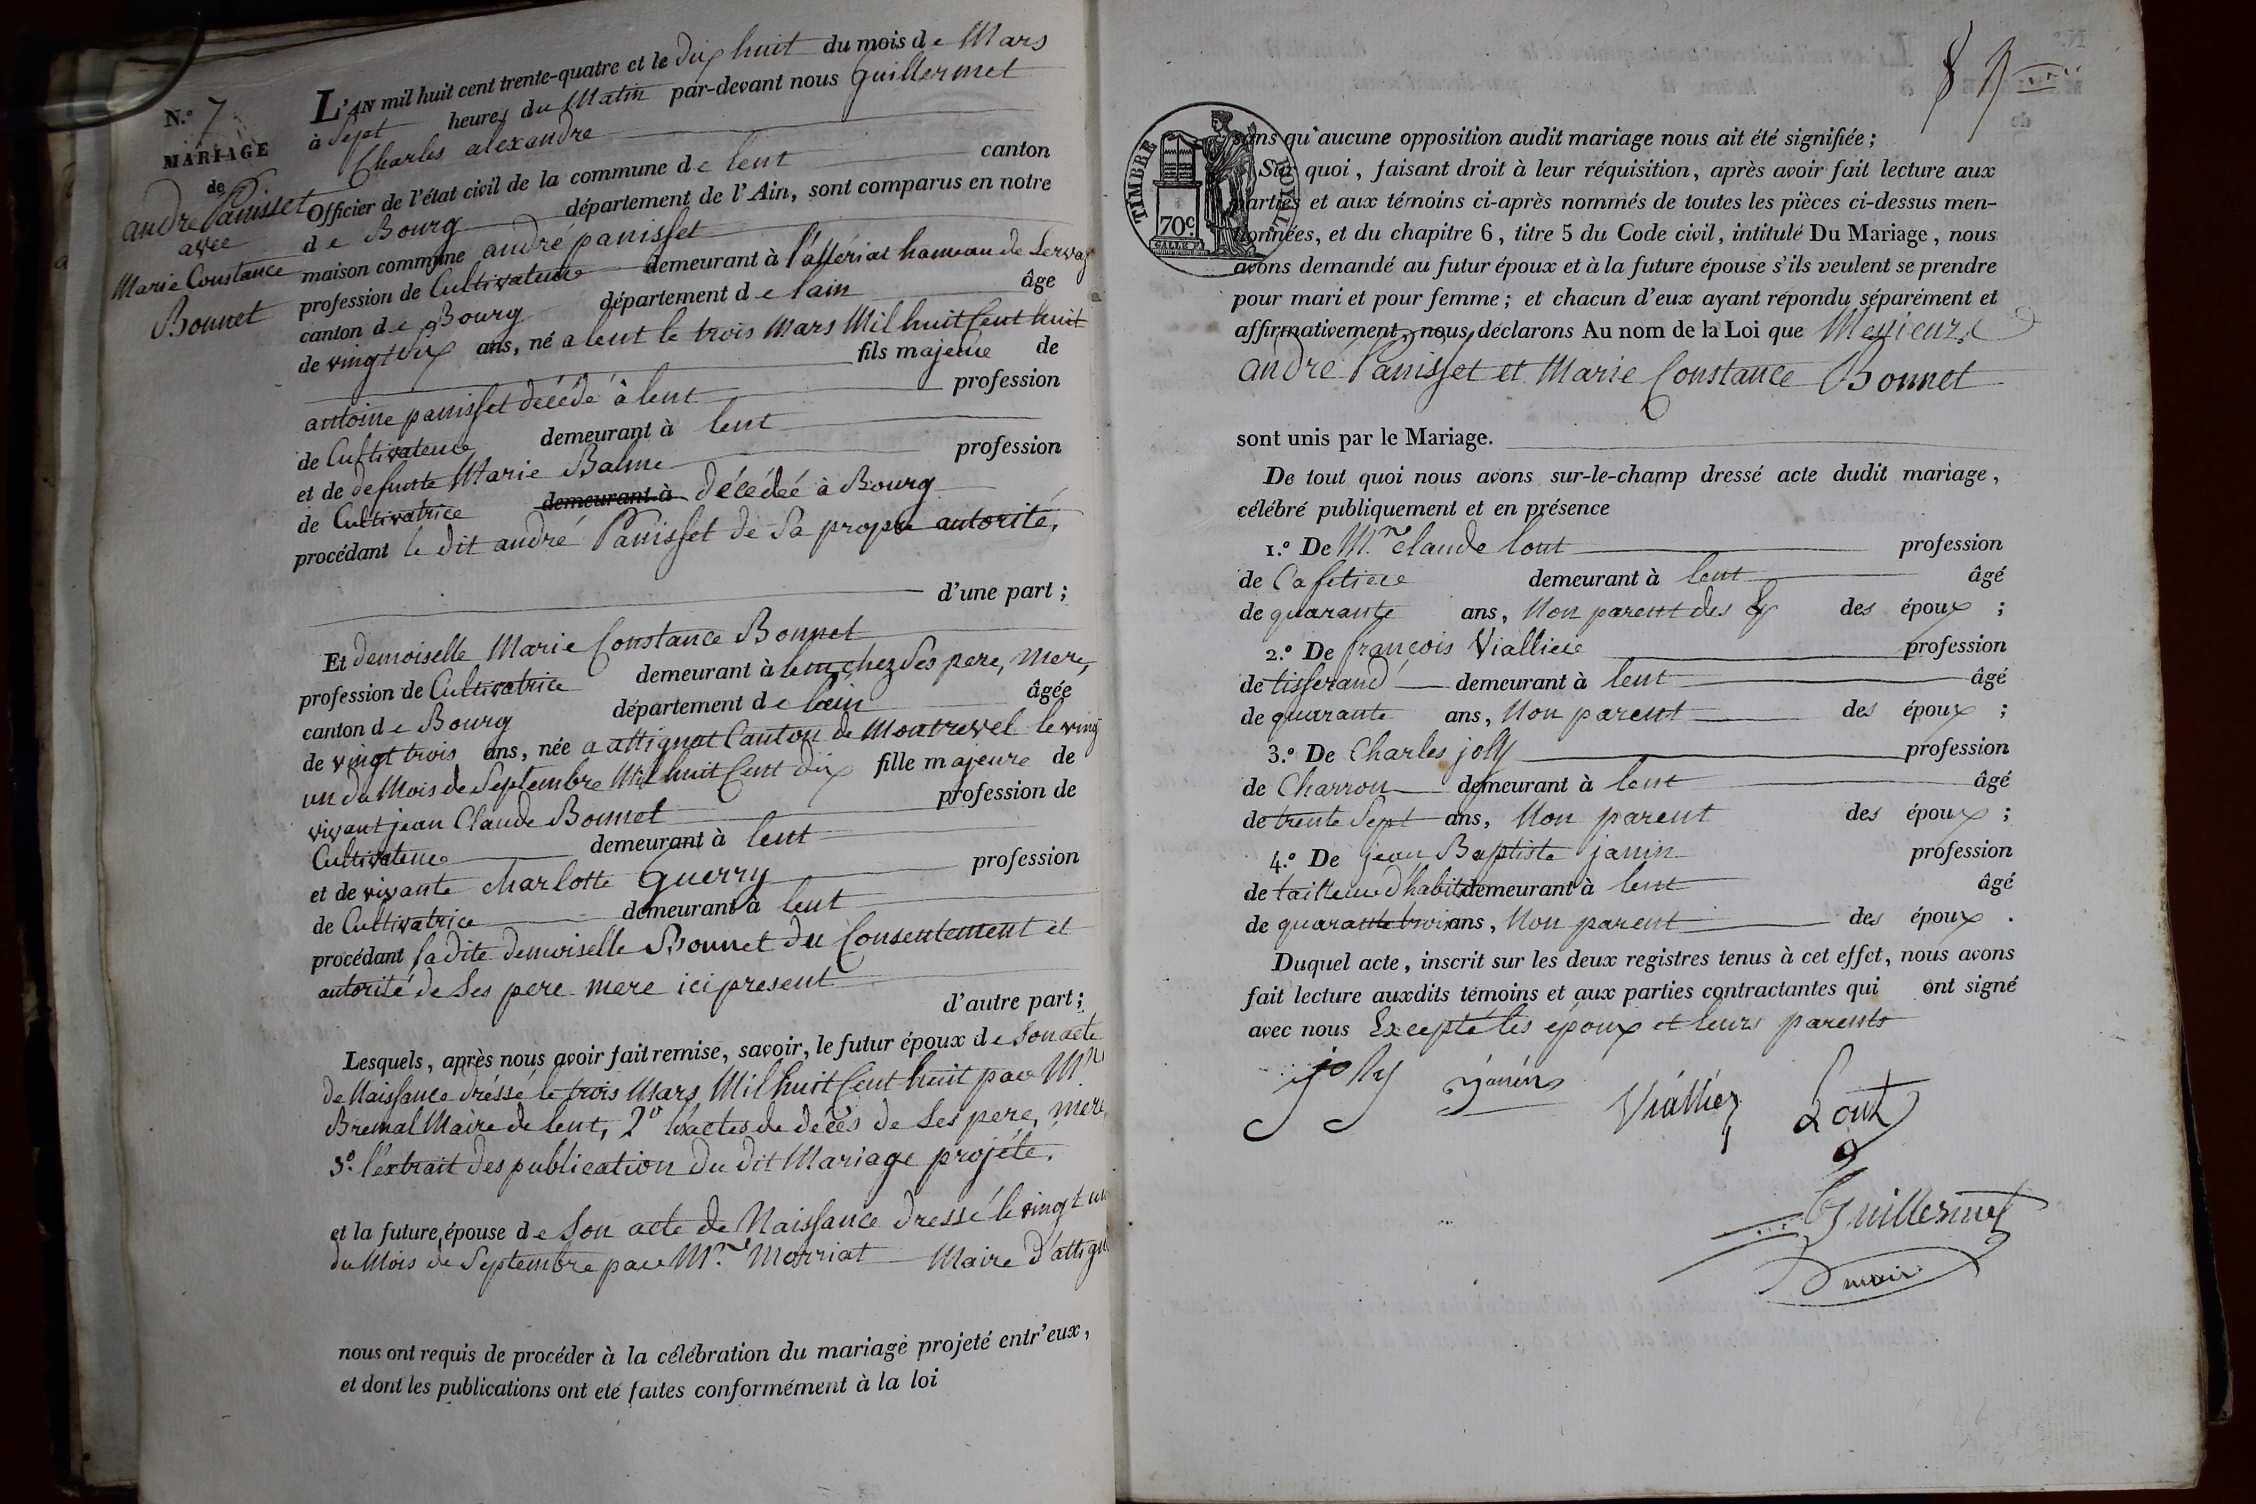 N.º 7
MARIAGE
de
andre Panisset
avec
Marie Constance
Bonnet
L'AN mil huit cent trente-quatre et le dix huit du mois de Mars
à Sept heures du Matin par-devant nous Guillermet
Charles alexandre
Officier de l'état civil de la commune de lent canton
de Bourg département de l'Ain, sont comparus en notre
maison commune andré panisset
profession de Cultivateur demeurant à l'alleriat hameau de Servas
canton de Bourg département de lain âge
de vingt six ans, né a lent le trois Mars Mil huit Cent huit
fils majeur de
antoine panisset décédé à lent profession
de Cultivateur demeurant à lent
et de defunte Marie Balme profession
de Cultivatrice demeurant à décédée à Bourg
procédant le dit andré Panisset de Sa propre autorité,
d'une part ;
Et demoiselle Marie Constance Bonnet
profession de Cultivatrice demeurant à lent, chez Ses pere, mere,
canton de Bourg département de lain âgée
de vingt trois ans, née a attignat Canton de Montrevel le vingt
un du Mois de Septembre Mil huit Cent dix fille majeure de
vivant jean Claude Bonnet profession de
Cultivateur demeurant à lent
et de vivante charlotte Guerry profession
de Cultivatrice demeurant à lent
procédant ladite demoiselle Bonnet du Consentement et
autorité de Ses pere mere ici present
d'autre part ;
Lesquels, après nous avoir fait remise, savoir, le futur époux de Son acte
de Naissance dréssé le trois Mars Mil huit Cent huit par Mr
Bremal Maire de lent, 2º les actes de décès de Ses pere, mere,
3º. l'extrait des publication du dit Mariage projété.
et la future épouse de Son acte de Naissance dressé le vingt un
du Mois de Septembre par Mr. Morriat Maire d'attign
nous ont requis de procéder à la célébration du mariage projeté entr'eux,
et dont les publications ont été faites conformément à la loi
TIMBRE ROYAL
70c
sans qu'aucune opposition audit mariage nous ait été signifiée ;
Sur quoi, faisant droit à leur réquisition, après avoir fait lecture aux
parties et aux témoins ci-après nommés de toutes les pièces ci-dessus men-
tionnées, et du chapitre 6, titre 5 du Code civil, intitulé Du Mariage, nous
avons demandé au futur époux et à la future épouse s'ils veulent se prendre
pour mari et pour femme ; et chacun d'eux ayant répondu séparément et
affirmativement, nous déclarons Au nom de la Loi que Messieurs
andré Panisset et Marie Constance Bonnet
sont unis par le Mariage.
De tout quoi nous avons sur-le-champ dressé acte dudit mariage,
célébré publiquement et en présence
1.º De Mr. Claude Lout profession
de Cafetier demeurant à lent âgé
de quarante ans, Non parent des des époux ;
2.º De françois Viallier profession
de tisserand demeurant à lent âgé
de quarante ans, Non parent des époux ;
3.º De Charles jolly profession
de Charron demeurant à lent âgé
de trente Sept ans, Non parent des époux ;
4.º De jean Baptiste janin profession
de tailleur d'habits demeurant à lent âgé
de quarante trois ans, Non parent des époux .
Duquel acte, inscrit sur les deux registres tenus à cet effet, nous avons
fait lecture auxdits témoins et aux parties contractantes qui ont signé
avec nous Excepté les époux et leurs parents
jolly janin Viallier Lout
Guillermet
maire